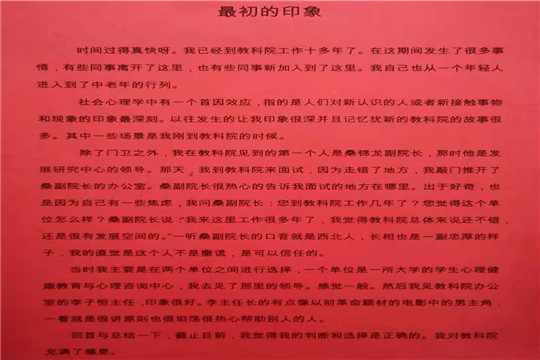 最初的印象
时间过得真快呀。我已经到教科院工作十多年了。在这期间发生了很多事
情，有些同事离开了这里，也有些同事新加入到了这里。我自己也从一个年轻人
进入到了中老年的行列。
社会心理学中有一个首因效应，指的是人们对新认识的人或者新接触事物
和现象的印象最深刻。以往发生的让我印象很深并且记忆犹新的教科院的故事很
多。其中一些场景是我刚到教科院的时候。
除了门卫之外，我在教科院见到的第一个人是桑锦龙副院长，那时他是发
展研究中心的领导。那天，我到教科院来面试，因为走错了地方，我敲门推开了
桑副院长的办公室。桑副院长很热心的告诉我面试的地方在哪里。出于好奇，也
是因为自己有一些焦虑，我问桑副院长：您到教科院工作几年了？您觉得这个单
位怎么样？桑副院长说：“我来这里工作很多年了，我觉得教科院总体来说还不错，
还是很有发展空间的。”一听桑副院长的口音就是西北人，长相也是一副忠厚的样
子，我的直觉是这个人不是撒谎，是可以信任的。
当时我主要是在两个单位之间进行选择，一个单位是一所大学的学生心理健
康教育与心理咨询中心，我去见了那里的领导。感觉一般。然后我见教科院办公
室的李子恒主任，印象很好。李主任长的有点像以前革命题材的电影中的男主角，
一看就是很讲原则也很坦荡很热心帮助别人的人。
回首与总结一下，截止目前，我觉得我的判断和选择是正确的。我对教科院
充满了感恩。